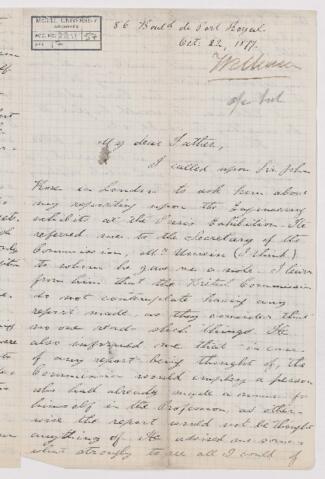 McGILL UNIVERSITY
ARCHIVES
ACC. NO. 2211/57
86 Bould de Port Royal
Oct. 22, 1877.
My dear Father,
I called upon Sir John
in London to ask him about
my reporting upon the Engineering
exhibits at the Paris Exhibition. He
referred me to the Secretary of the
Commission, Mr (I think)
to whom he gave me a note. I learn
from him that the British Commission
do not contemplate having any
report made, as they consider that
no one reads which things. He
also informed me that in case
of any report being thought of, the
Commission would employ a person
who had already made a name for
himself in the Profession, as other-
wise the report would not be thought
anything of. He advised me some-
what strongly to see all I could of